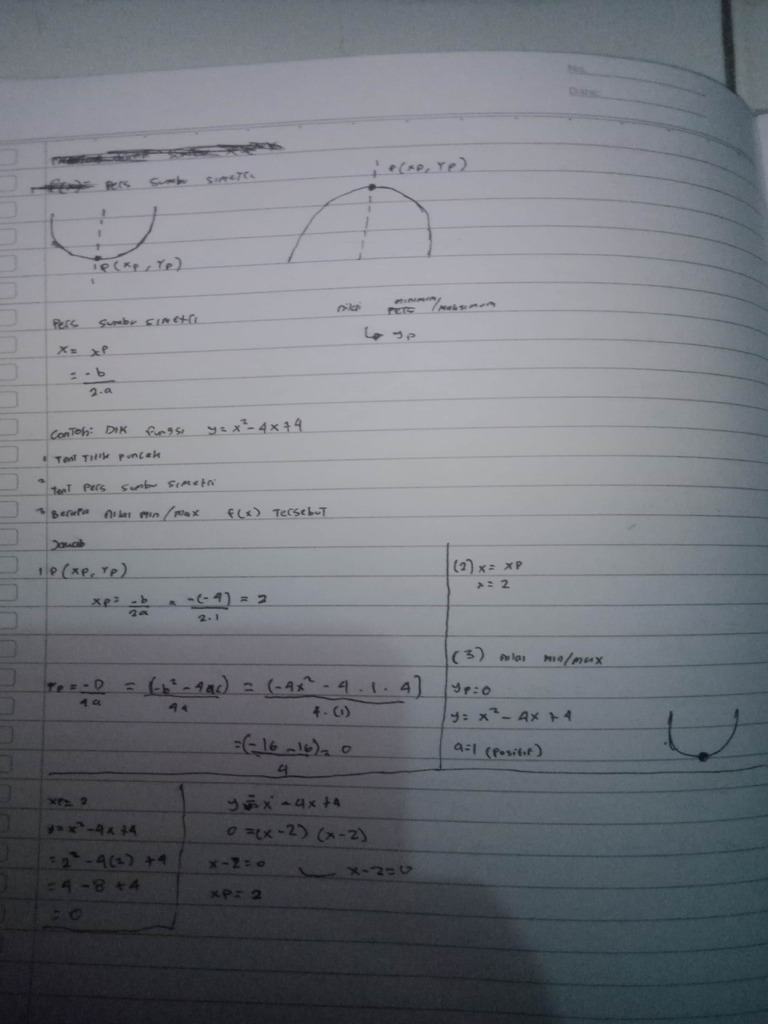 No.
Date:
Pers sumbu simetri
P(xp, Yp)
P(xp, Yp)
Pers sumbu simetri
nilai minimum/maksimum
x = xp
↳ yp
= -b
2.a
Contoh: Dik fungsi y = x² - 4x + 4
1 Tent Titik puncak
2 Tent pers sumbu simetri
3 Berapa nilai min/max f(x) Tersebut
Jawab
1 P(xp, Yp)
xp = -b/2a = -(-4)/2.1 = 2
Yp = -D/4a = (-b² - 4ac)/4a = (-4x² - 4 . 1 . 4)/4.(1)
= (-16 - 16)/4 = 0
(2) x = xp
x = 2
(3) nilai min/max
yp = 0
y = x² - 4x + 4
a = 1 (positif)
xp = 2
y = x² - 4x + 4
= 2² - 4(2) + 4
= 4 - 8 + 4
= 0
y = x² - 4x + 4
0 = (x - 2) (x - 2)
x - 2 = 0 x - 2 = 0
xp = 2